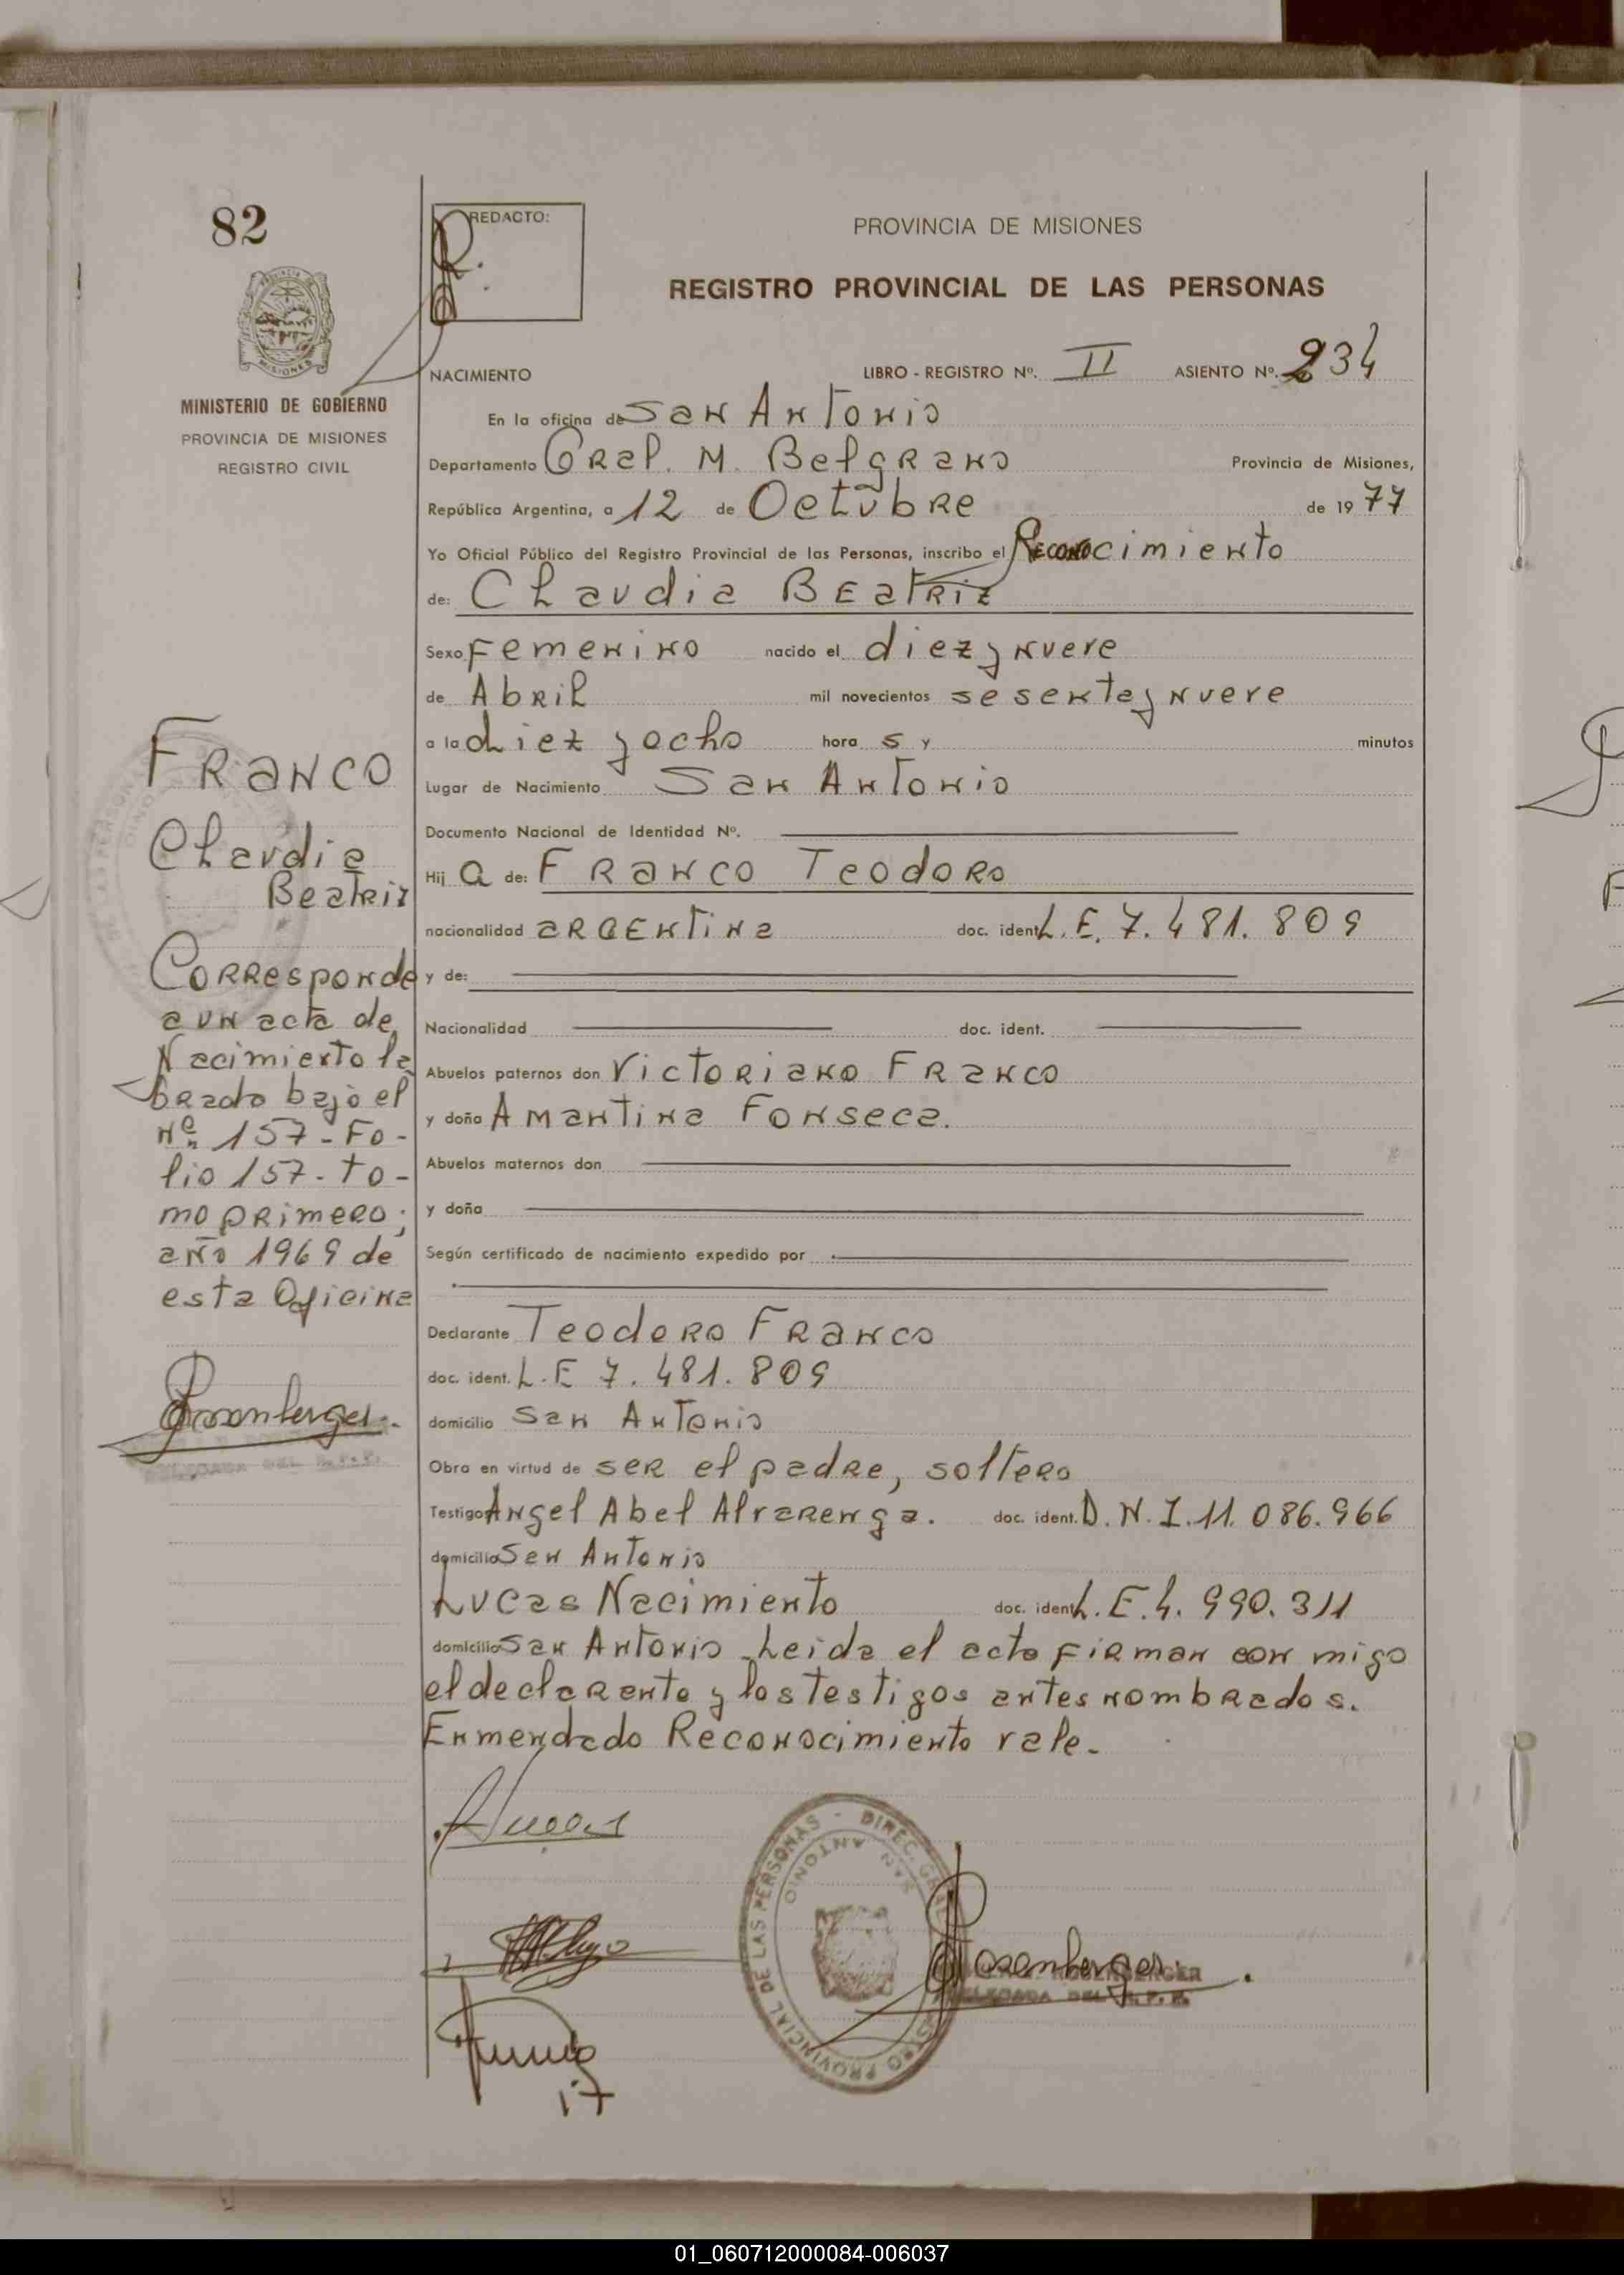 82
REDACTO:
PROVINCIA DE MISIONES
REGISTRO PROVINCIAL DE LAS PERSONAS
MINISTERIO DE GOBIERNO
PROVINCIA DE MISIONES
REGISTRO CIVIL
NACIMIENTO LIBRO - REGISTRO Nº. II ASIENTO Nº. 234
En la oficina de San Antonio
Departamento Gral. M. Belgrano Provincia de Misiones,
República Argentina, a 12 de Octubre de 1977
Yo Oficial Público del Registro Provincial de las Personas, inscribo el Reconocimiento
de: Claudia Beatriz
Sexo Femenino nacido el diez y nueve
de Abril mil novecientos sesenta y nueve
a la diez y ocho hora s y minutos
Lugar de Nacimiento San Antonio
Documento Nacional de Identidad Nº.
Hij a de: Franco Teodoro
nacionalidad argentina doc. ident. L.E. 7.481.809
y de:
Nacionalidad doc. ident.
Abuelos paternos don Victoriano Franco
y doña Amantina Fonseca.
Abuelos maternos don
y doña
Según certificado de nacimiento expedido por
Declarante Teodoro Franco
doc. ident. L.E 7.481.809
domicilio San Antonio
Obra en virtud de ser el padre, soltero
Testigo Angel Abel Alvarenga. doc. ident. D.N.I. 11.086.966
domicilio San Antonio
Lucas Nacimiento doc. ident. L.E. 4.990.311
domicilio San Antonio Leida el acta firman con migo
el declarante y los testigos antes nombrados.
Enmendado Reconocimiento vale.
Franco
Claudia
Beatriz
Corresponde
a un acta de
Nacimiento la
brada bajo el
Nº 157 - Fo-
lio 157 - to-
mo primero;
año 1969 de
esta Oficina
Rosenberger
DIREC. GRAL. REGISTRO PROVINCIAL DE LAS PERSONAS
SAN ANTONIO
Rosenberger
ROSENBERGER
DELEGADA DEL R.P.P.
01_060712000084-006037